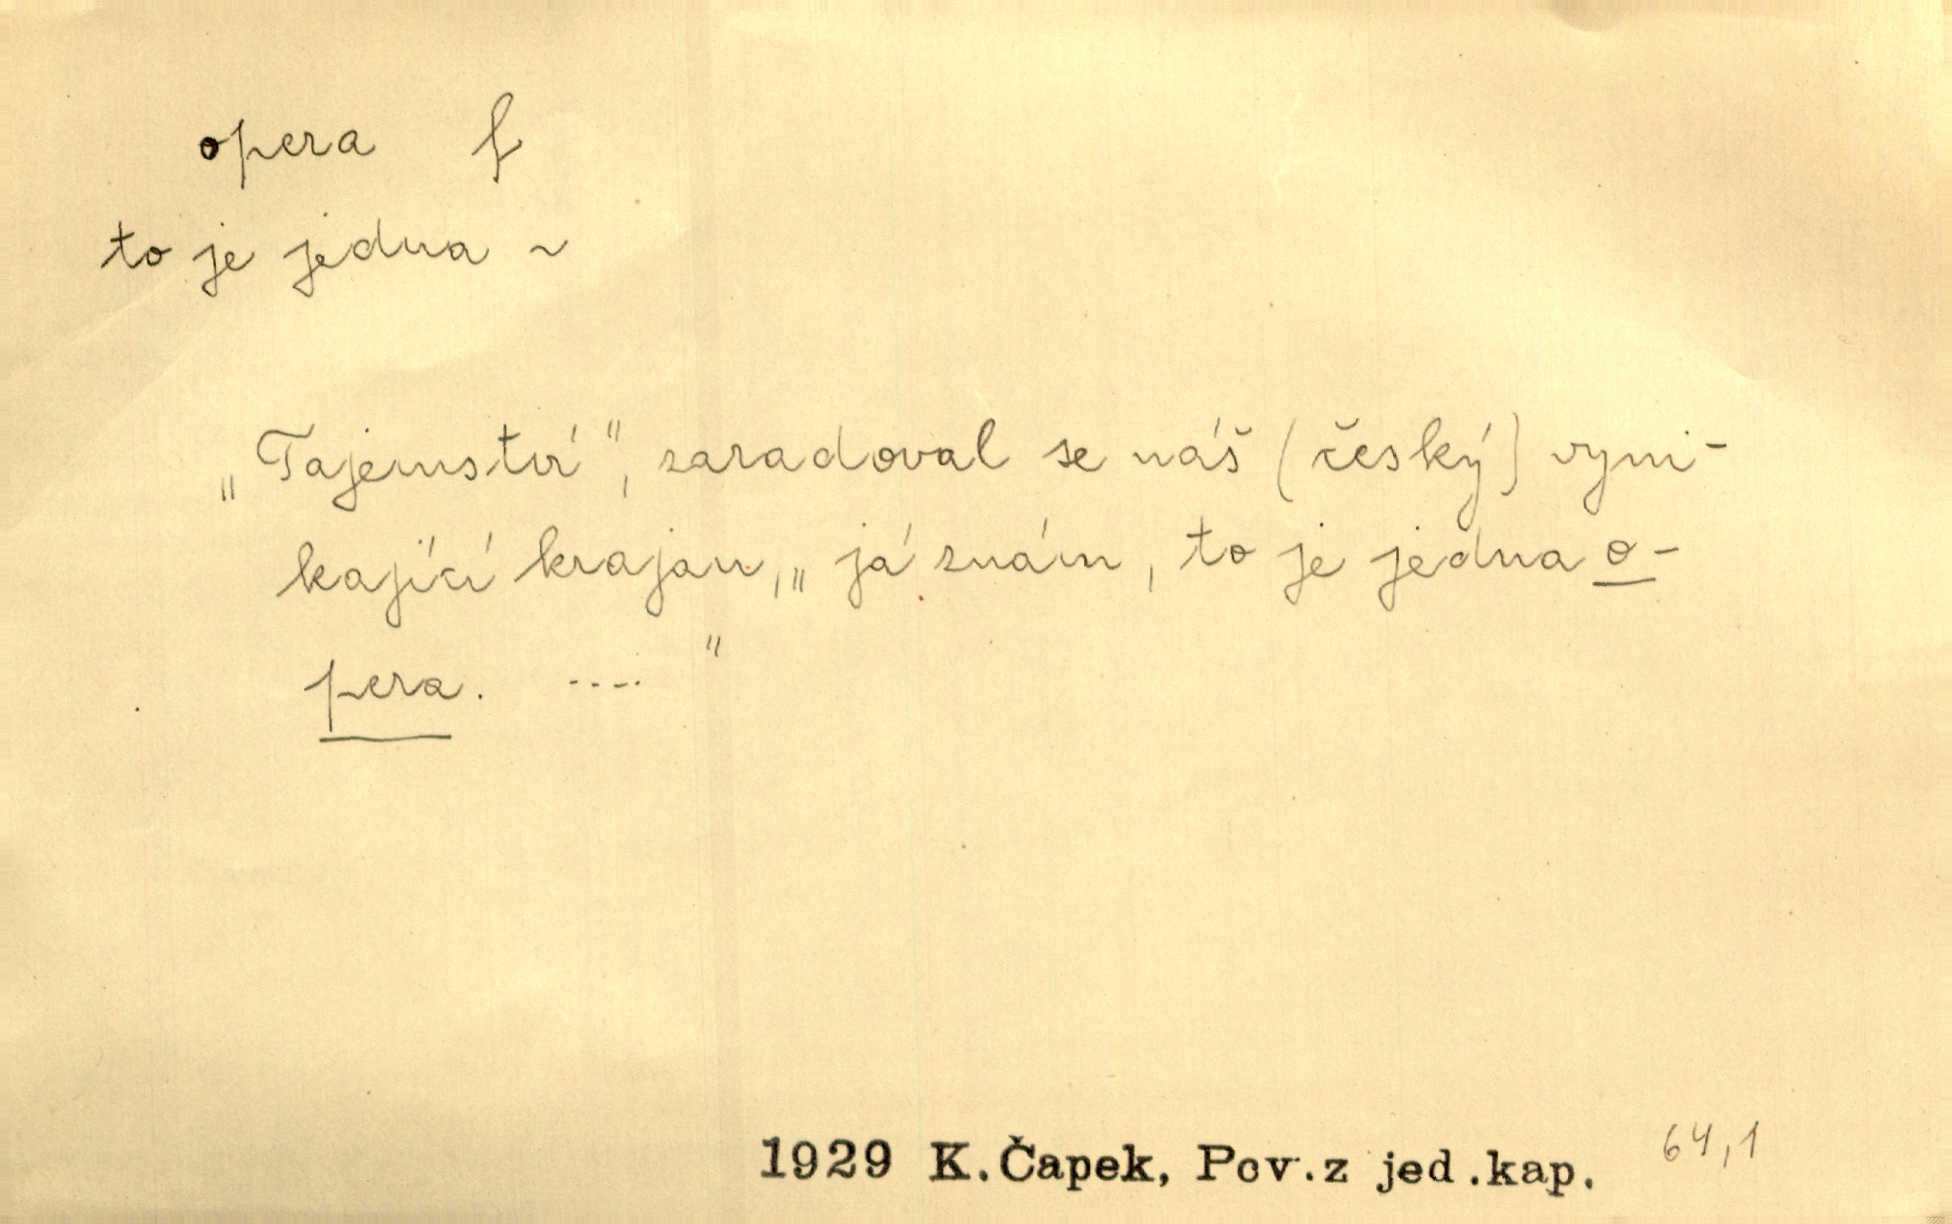 opera f
to je jedna ~
„Tajemství", zaradoval se náš (český) vyni-
kající krajan, „já znám, to je jedna o-
pera. ...."
1929 K.Čapek, Pov.z jed.kap. 64,1